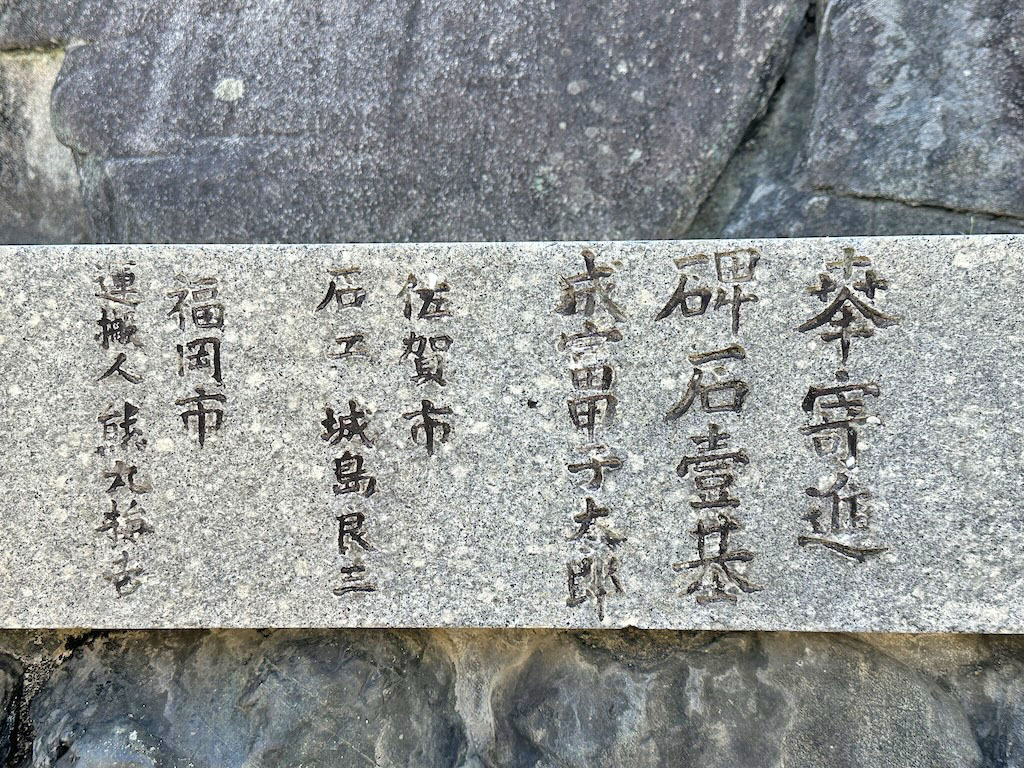 奉寄進
碑石壹基
成富甲子太郎
佐賀市
石工 城島良三
福岡市
運搬人 熊丸梅吉